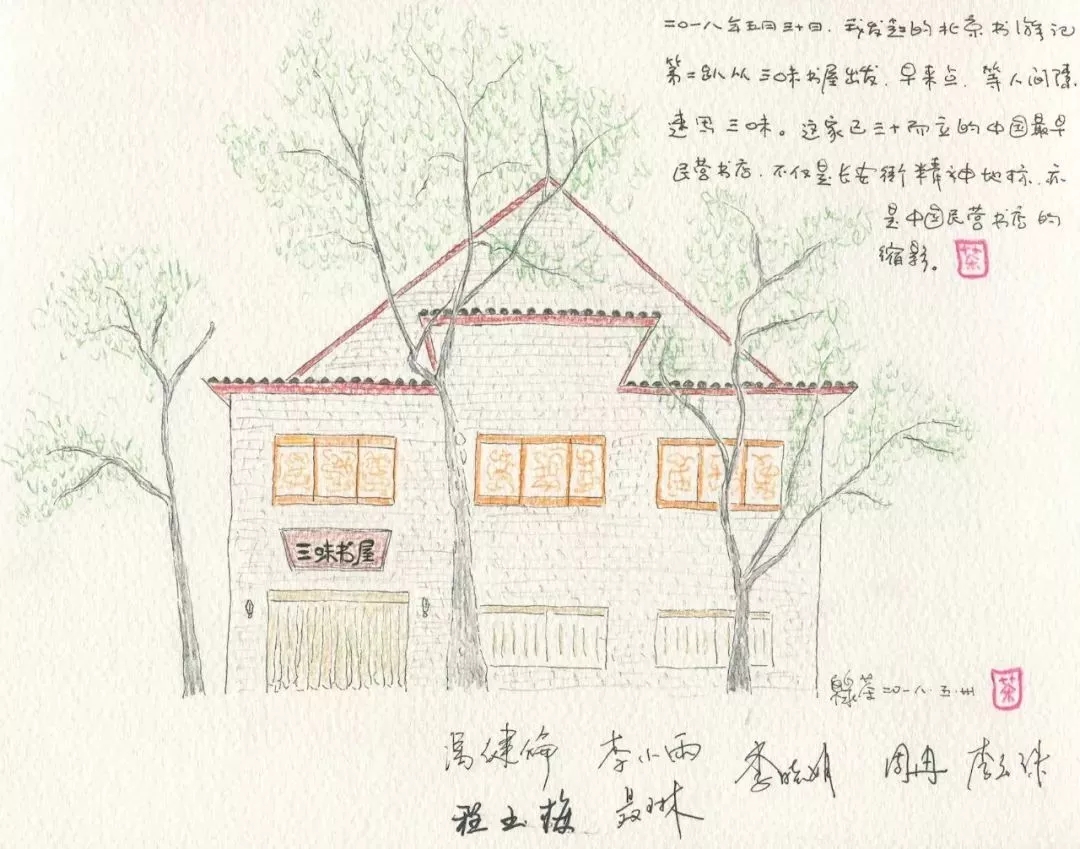 二〇一八年五月三十日，我发起的北京书游记
第二趴从三味书屋出发。早来点，等人间隙
速写三味。这家已三十而立的中国最早
民营书店，不仅是长安街精神地标，亦
是中国民营书店的
缩影。
茶
三味书屋
绿茶 二〇一八·五·卅
茶
李小雨 周冉
程玉梅 聂琳